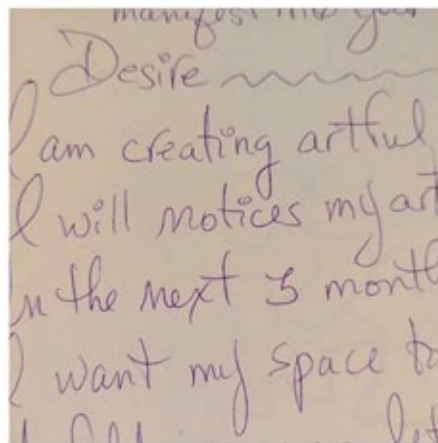 manifest into your
Desire
I am creating artful
I will notices my art
In the next 3 month
I want my space to